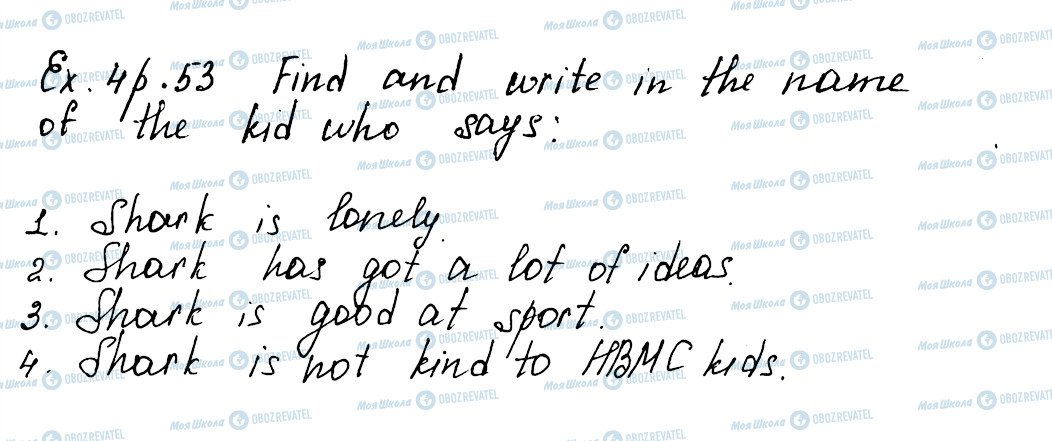 Ex. 4 p. 53 Find and write in the name
of the kid who says:
1. Shark is lonely.
2. Shark has got a lot of ideas.
3. Shark is good at sport.
4. Shark is not kind to HBMC kids.